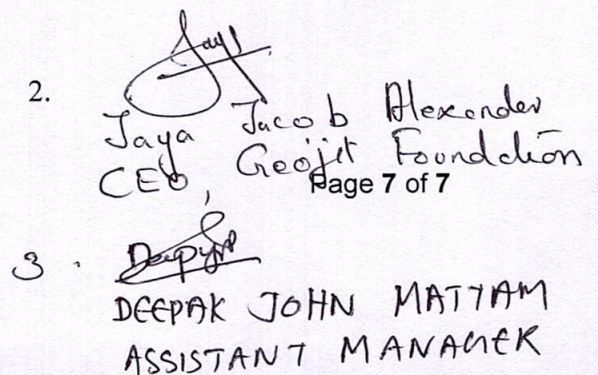 2.
Jaya Jacob Alexander
CEO, Geojit Foundation
Page 7 of 7
3.
DEEPAK JOHN MATTAM
ASSISTANT MANAGER